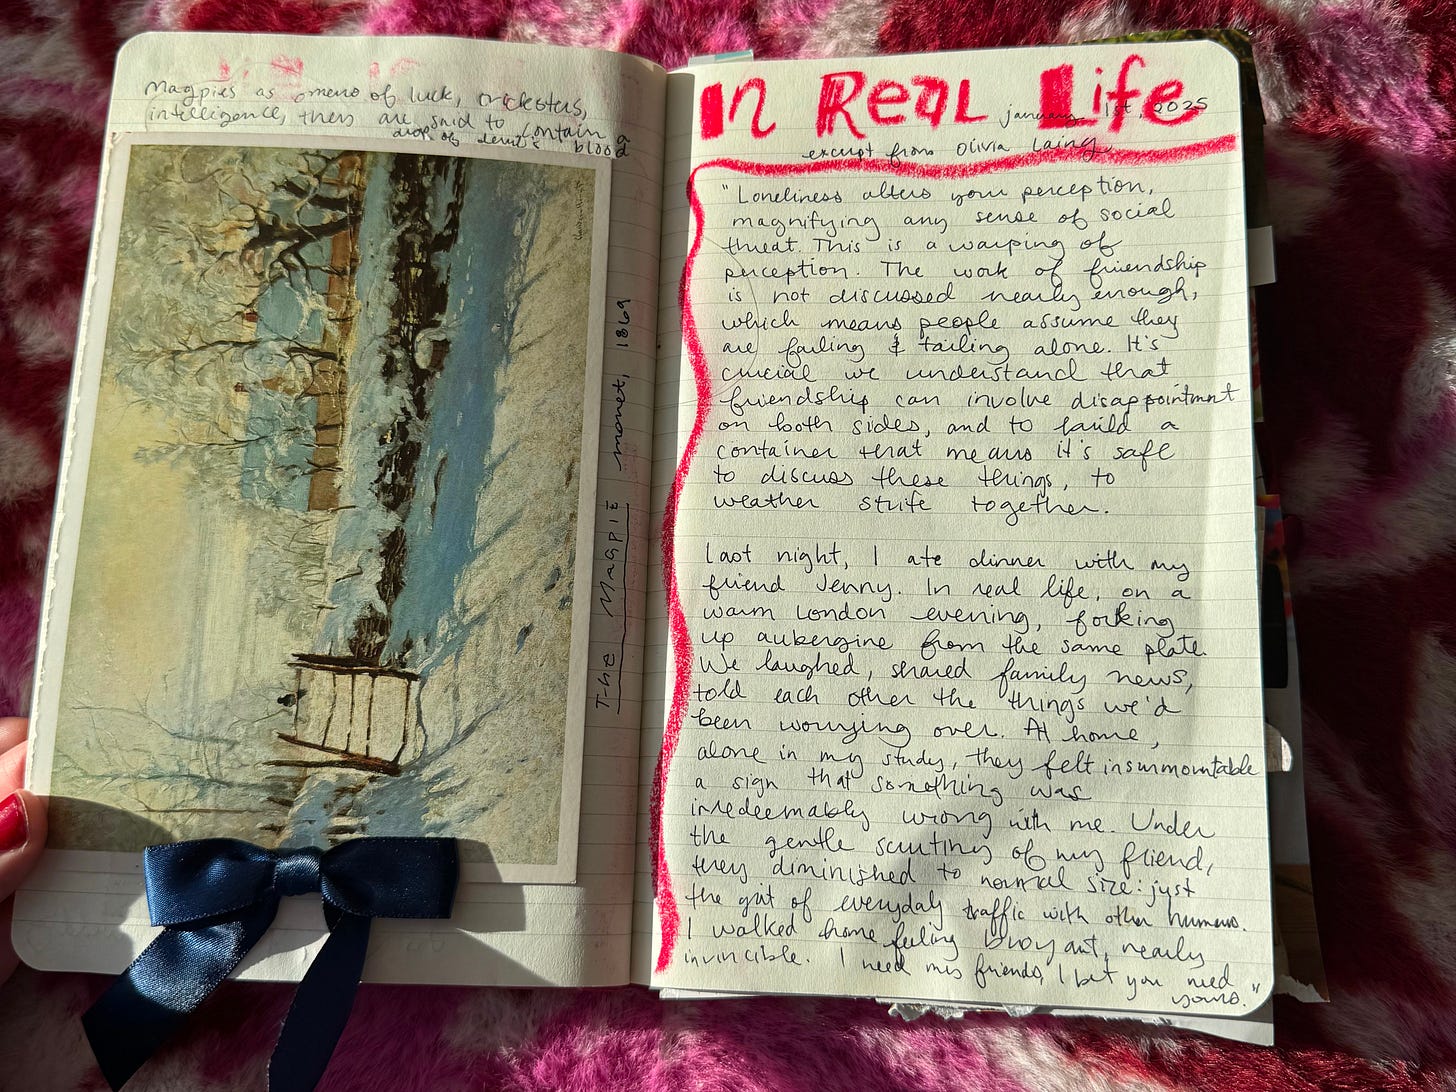 Magpies as omens of luck, tricksters,
intelligence, they are said to contain a
drop of devil's blood
The Magpie monet, 1869
In Real Life
january 1st, 2025
excerpt from Olivia Laing
"Loneliness alters your perception,
magnifying any sense of social
threat. This is a warping of
perception. The work of friendship
is not discussed nearly enough,
which means people assume they
are failing & failing alone. It's
crucial we understand that
friendship can involve disappointment
on both sides, and to build a
container that means it's safe
to discuss these things, to
weather strife together.
Last night, I ate dinner with my
friend Jenny. In real life, on a
warm London evening, forking
up aubergine from the same plate.
We laughed, shared family news,
told each other the things we'd
been worrying over. At home,
alone in my study, they felt insurmountable
a sign that something was
irredeemably wrong with me. Under
the gentle scrutiny of my friend,
they diminished to normal size: just
the grit of everyday traffic with other humans.
I walked home feeling buoyant, nearly
invincible. I need my friends, I bet you need
yours."